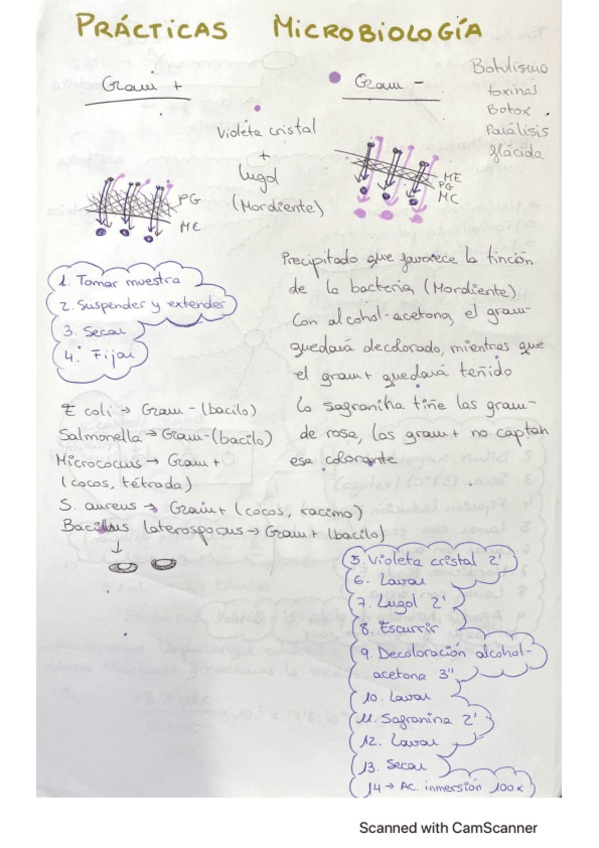 PRÁCTICAS MICROBIOLOGÍA
Gram +
Gram -
Botulismo
toxinas
Botox
Parálisis
flácida
Violeta cristal
+
Lugol
(Mordiente)
PG
ME
ME
PG
MC
1. Tomar muestra
2. Suspender y extender
3. Secar
4. Fijar
Precipitado que favorece la tinción
de la bacteria (Mordiente)
Con alcohol-acetona, el gram-
quedará decolorado, mientras que
el gram+ quedará teñido
la sagranina tiñe las gram-
de rosa, las gram+ no captan
ese colorante
E coli → Gram - (bacilo)
Salmonella → Gram - (bacilo)
Micrococus → Gram +
(cocos, tétrada)
S. aureus → Gram + (cocos, racimo)
Bacillus laterospocus → Gram + (bacilo)
5. Violeta cristal 2'
6. Lavar
7. Lugol 2'
8. Escurrir
9. Decoloración alcohol-
acetona 3"
10. Lavar
11. Sagranina 2'
12. Lavar
13. Secar
14 → Ac. inmersión 100x
Scanned with CamScanner